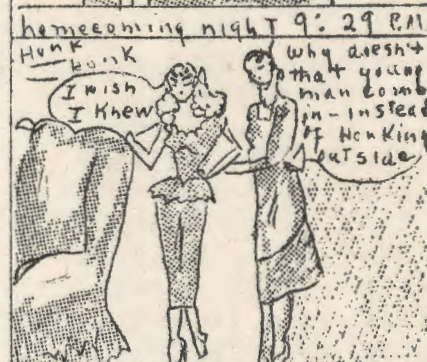 homecoming night 9:29 P.M
Honk
Honk
I wish
I Knew
Why doesn't
that young
man come
in-instead
of Honking
outside